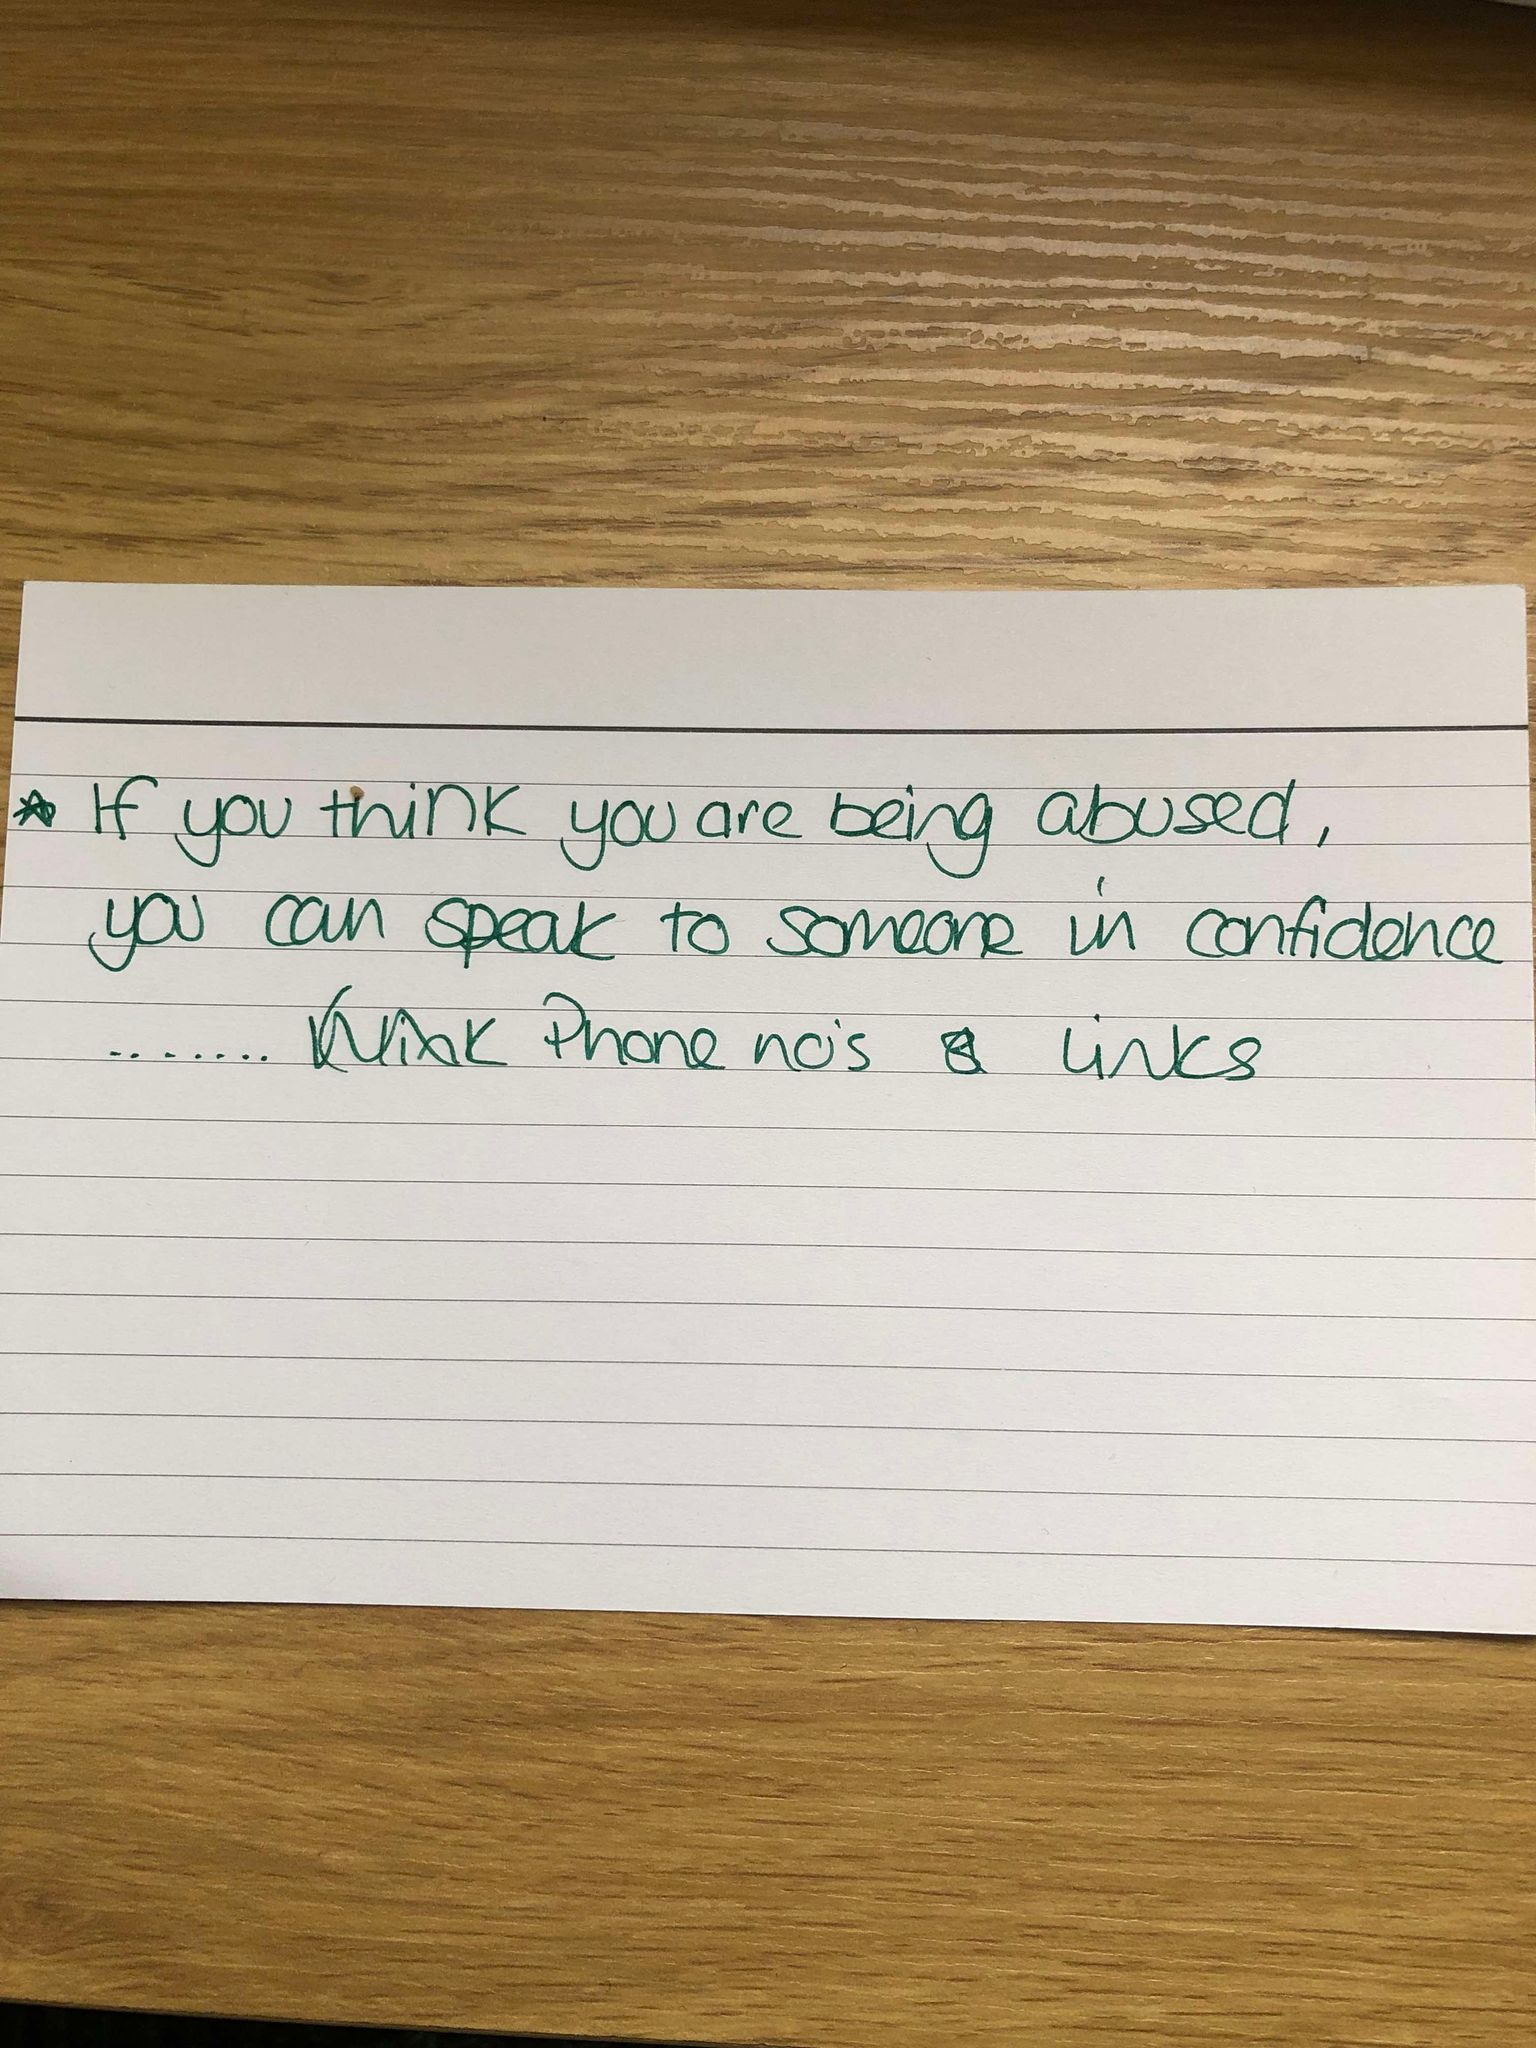 ☆ If you think you are being abused,
you can speak to someone in confidence
....... Phone no's & links